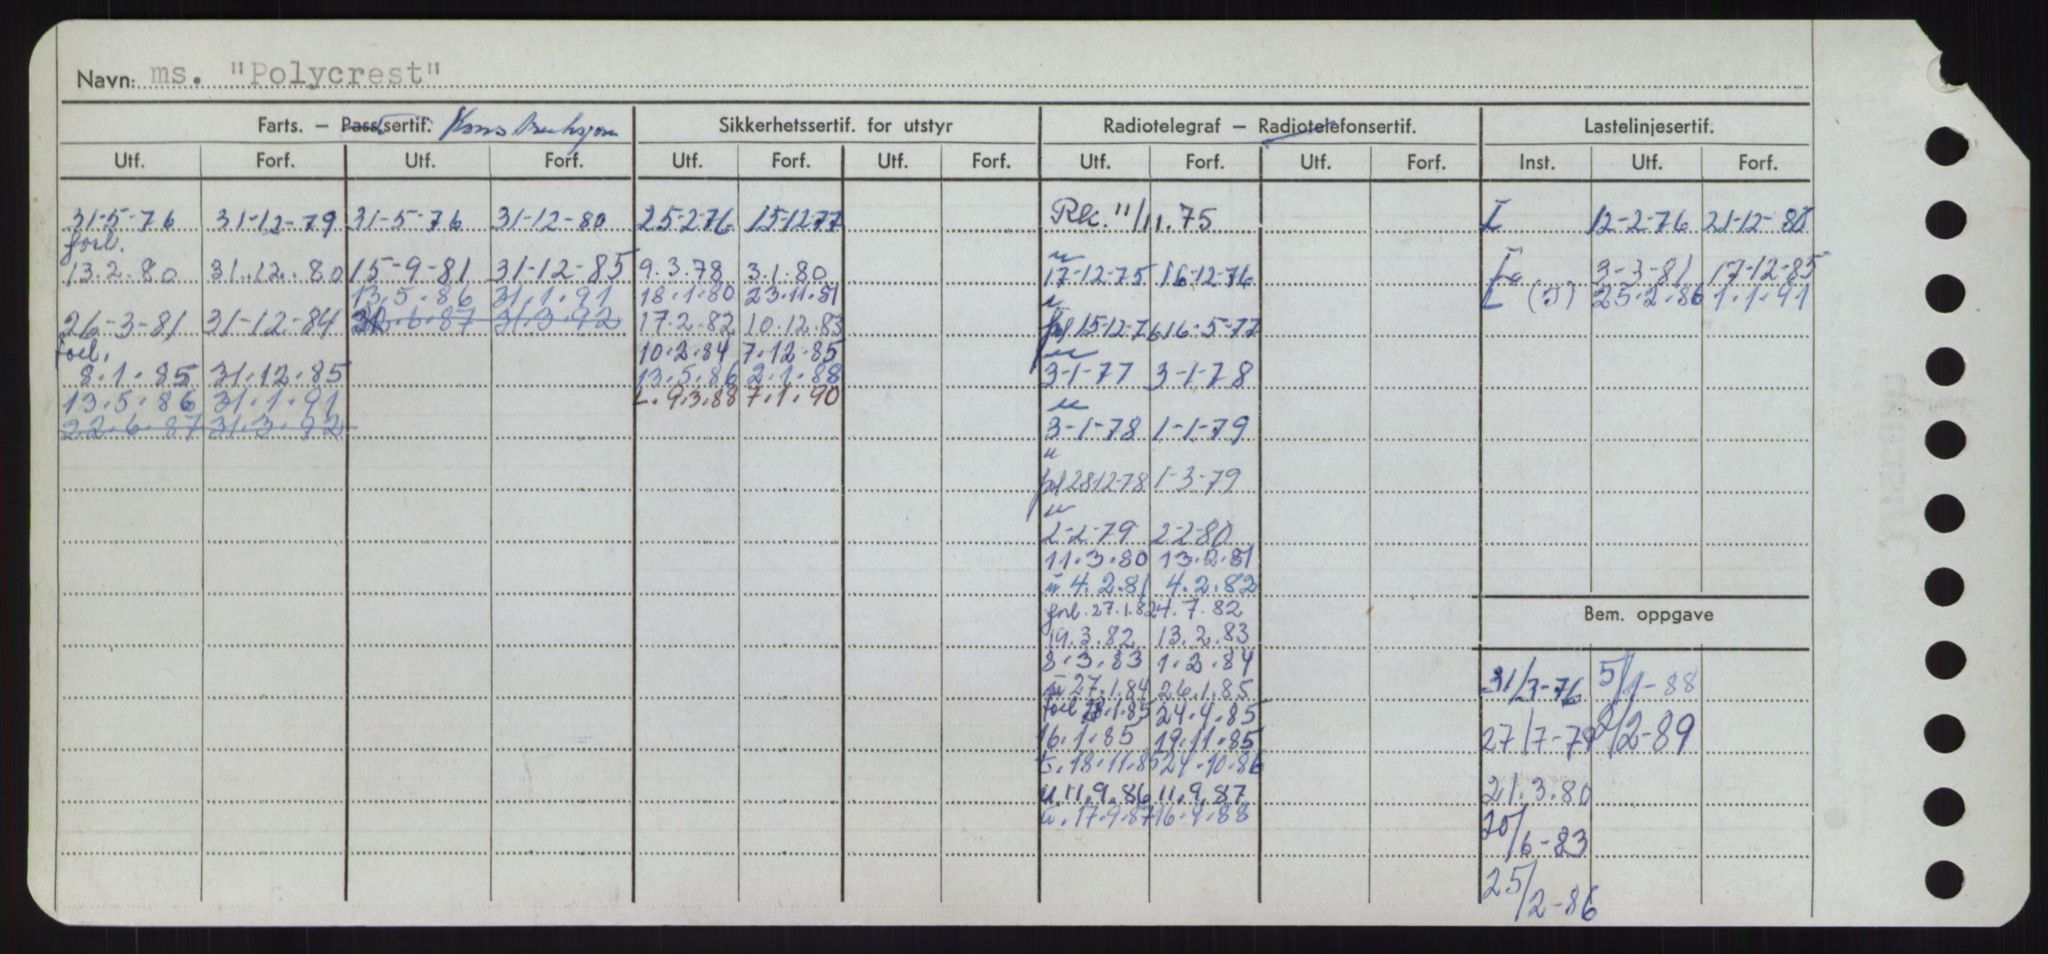 Navn: ms. "Polycrest"
Farts. – Passsertif. Konstruksjon
Sikkerhetssertif. for utstyr
Radiotelegraf – Radiotelefonsertif.
Lastelinjesertif.
Utf. Forf. Utf. Forf. Utf. Forf. Utf. Forf. Utf. Forf. Utf. Forf. Inst. Utf. Forf.
31-5-76 31-12-79 31-5-76 31-12-80
forl.
13.2.80 31.12.80 15-9-81 31-12-85
13.5.86 31.1.91
26-3-81 31-12-84 6.87 31.3.92
forl.
8.1.85 31.12.85
13.5.86 31.1.91
22.6.87 31.3.92
25-2-76 15-12-77
9.3.78 3.1.80
18.1.80 23.11.81
17.2.82 10.12.83
10.2.84 7.12.85
13.5.86 2.1.88
L. 9.3.88 7.1.90
Rk. 11/11.75
u
17-12-75 16-12-76
u
fl 15-12-76 16-5-77
u
3-1-77 3-1-78
u
3-1-78 1-1-79
u
fl 2812-78 1-3-79
u
2-2-79 2-2-80
11.3.80 13.2.81
u 4.2.81 4.2.82
forl. 27.1.82 4.7.82
19.3.82 13.2.83
8.3.83 1.2.84
u 27.1.84 26.1.85
forl 1.85 24.4.85
16.1.85 19.11.85
18.11.85 24.10.86
u 11.9.86 11.9.87
u. 17.9.87 16.9.88
I 12-2-76 21-12-80
3-3-81 17-12-85
L (J) 25.2.86 1.1.91
Bem. oppgave
31/3-76 5/1-88
27/7-79 2/2-89
21.3.80
20/6-83
25/2-86